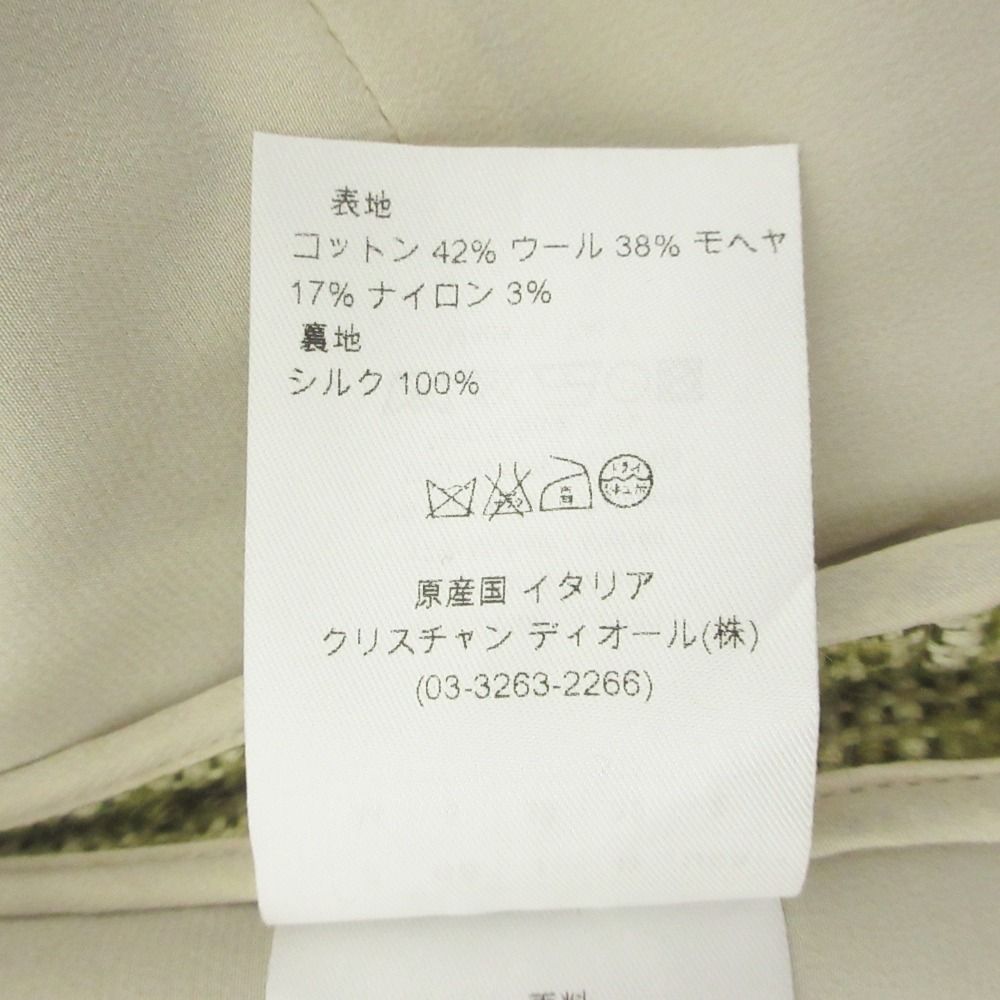 表地
コットン 42% ウール 38% モヘヤ
17% ナイロン 3%
裏地
シルク 100%
原産国 イタリア
クリスチャン ディオール(株)
(03-3263-2266)